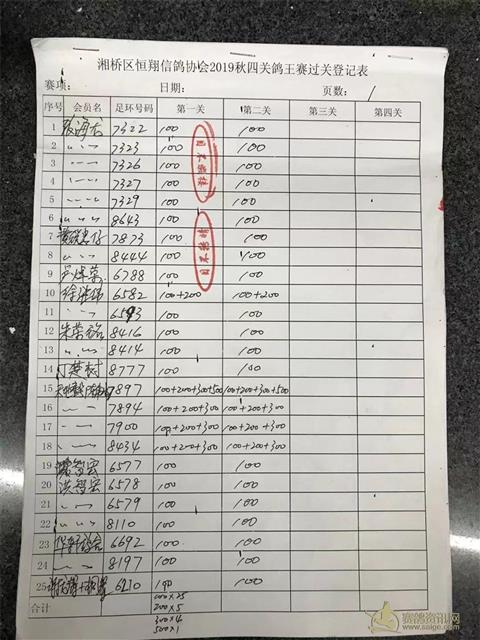 湘桥区恒翔信鸽协会2019秋四关鸽王赛过关登记表
赛项: 日期: 页数: 1
序号 会员名 足环号码 第一关 第二关 第三关 第四关
1 7322 100 100
2 〃 7323 100 100
3 〃 7326 100 100
4 〃 7327 100 100
5 〃 7329 100 100
6 〃 8643 100 100
7 7873 100 100
8 〃 8444 100 100
9 6788 100 100
10 6582 100+200 100+200
11 〃 6593 100 100
12 朱荣 8416 100 100
13 〃 8414 100 100
14 丁楚树 8777 100 100
15 7897 100+200+300+500 100+200+300+500
16 〃 7894 100+200+300 100+200+300
17 〃 7900 100+200+300 100+200+300
18 〃 8434 100+200+300 100+200+300
19 智宏 6577 100 100
20 洪智宏 6578 100 100
21 〃 6579 100 100
22 〃 8110 100 100
23 6692 100 100
24 〃 8197 100 100
25 6210 100 100
合计 100×25
200×5
300×4
500×1
赛鸽资讯网
www.saige.com